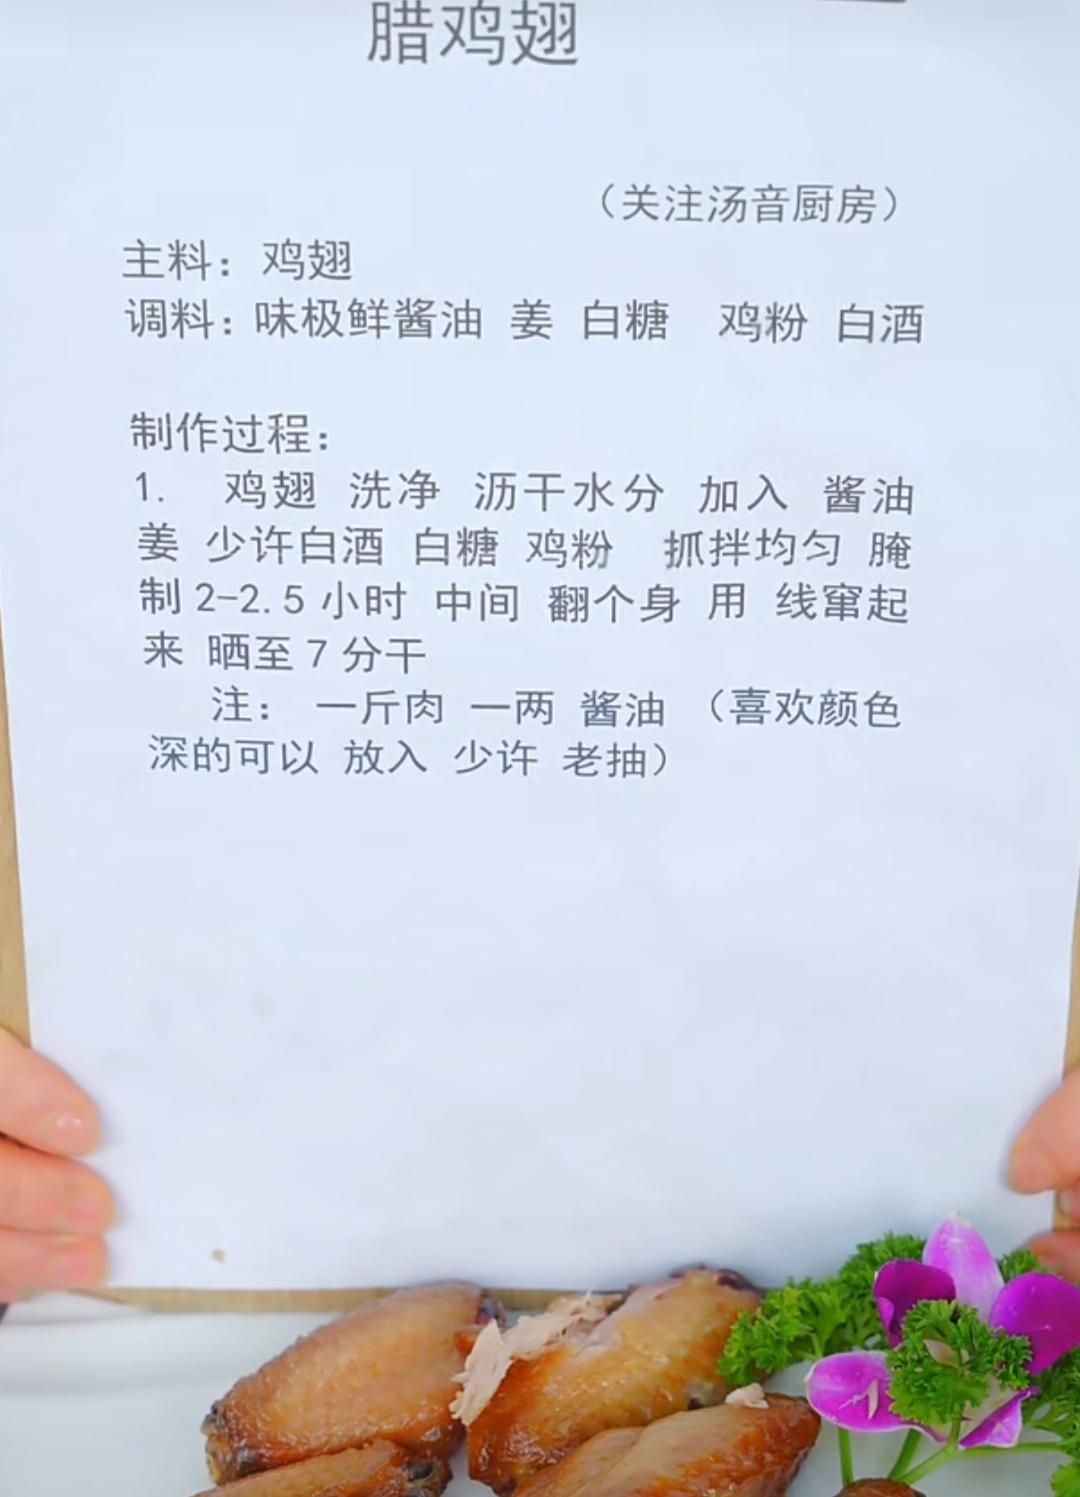 腊鸡翅
（关注汤音厨房）
主料：鸡翅
调料：味极鲜酱油 姜 白糖 鸡粉 白酒
制作过程：
1. 鸡翅 洗净 沥干水分 加入 酱油
姜 少许白酒 白糖 鸡粉 抓拌均匀 腌
制2-2.5小时 中间 翻个身 用 线窜起
来 晒至7分干
注： 一斤肉 一两 酱油 （喜欢颜色
深的可以 放入 少许 老抽）